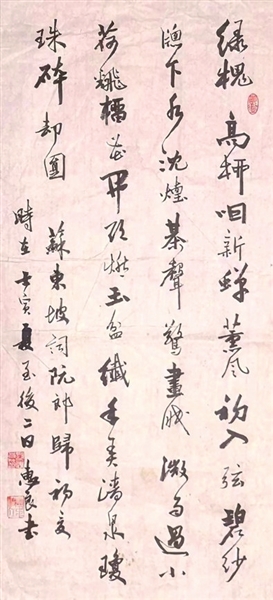 緑槐高柳咽新蟬薰風初入弦碧紗
牕下水沈煙碁聲驚晝眠微雨過小
荷飜榴花開欲燃玉盆纖手弄清泉瓊
珠碎却圓 蘇東坡詞阮郎歸初夏
時在壬寅夏至後二日 良书